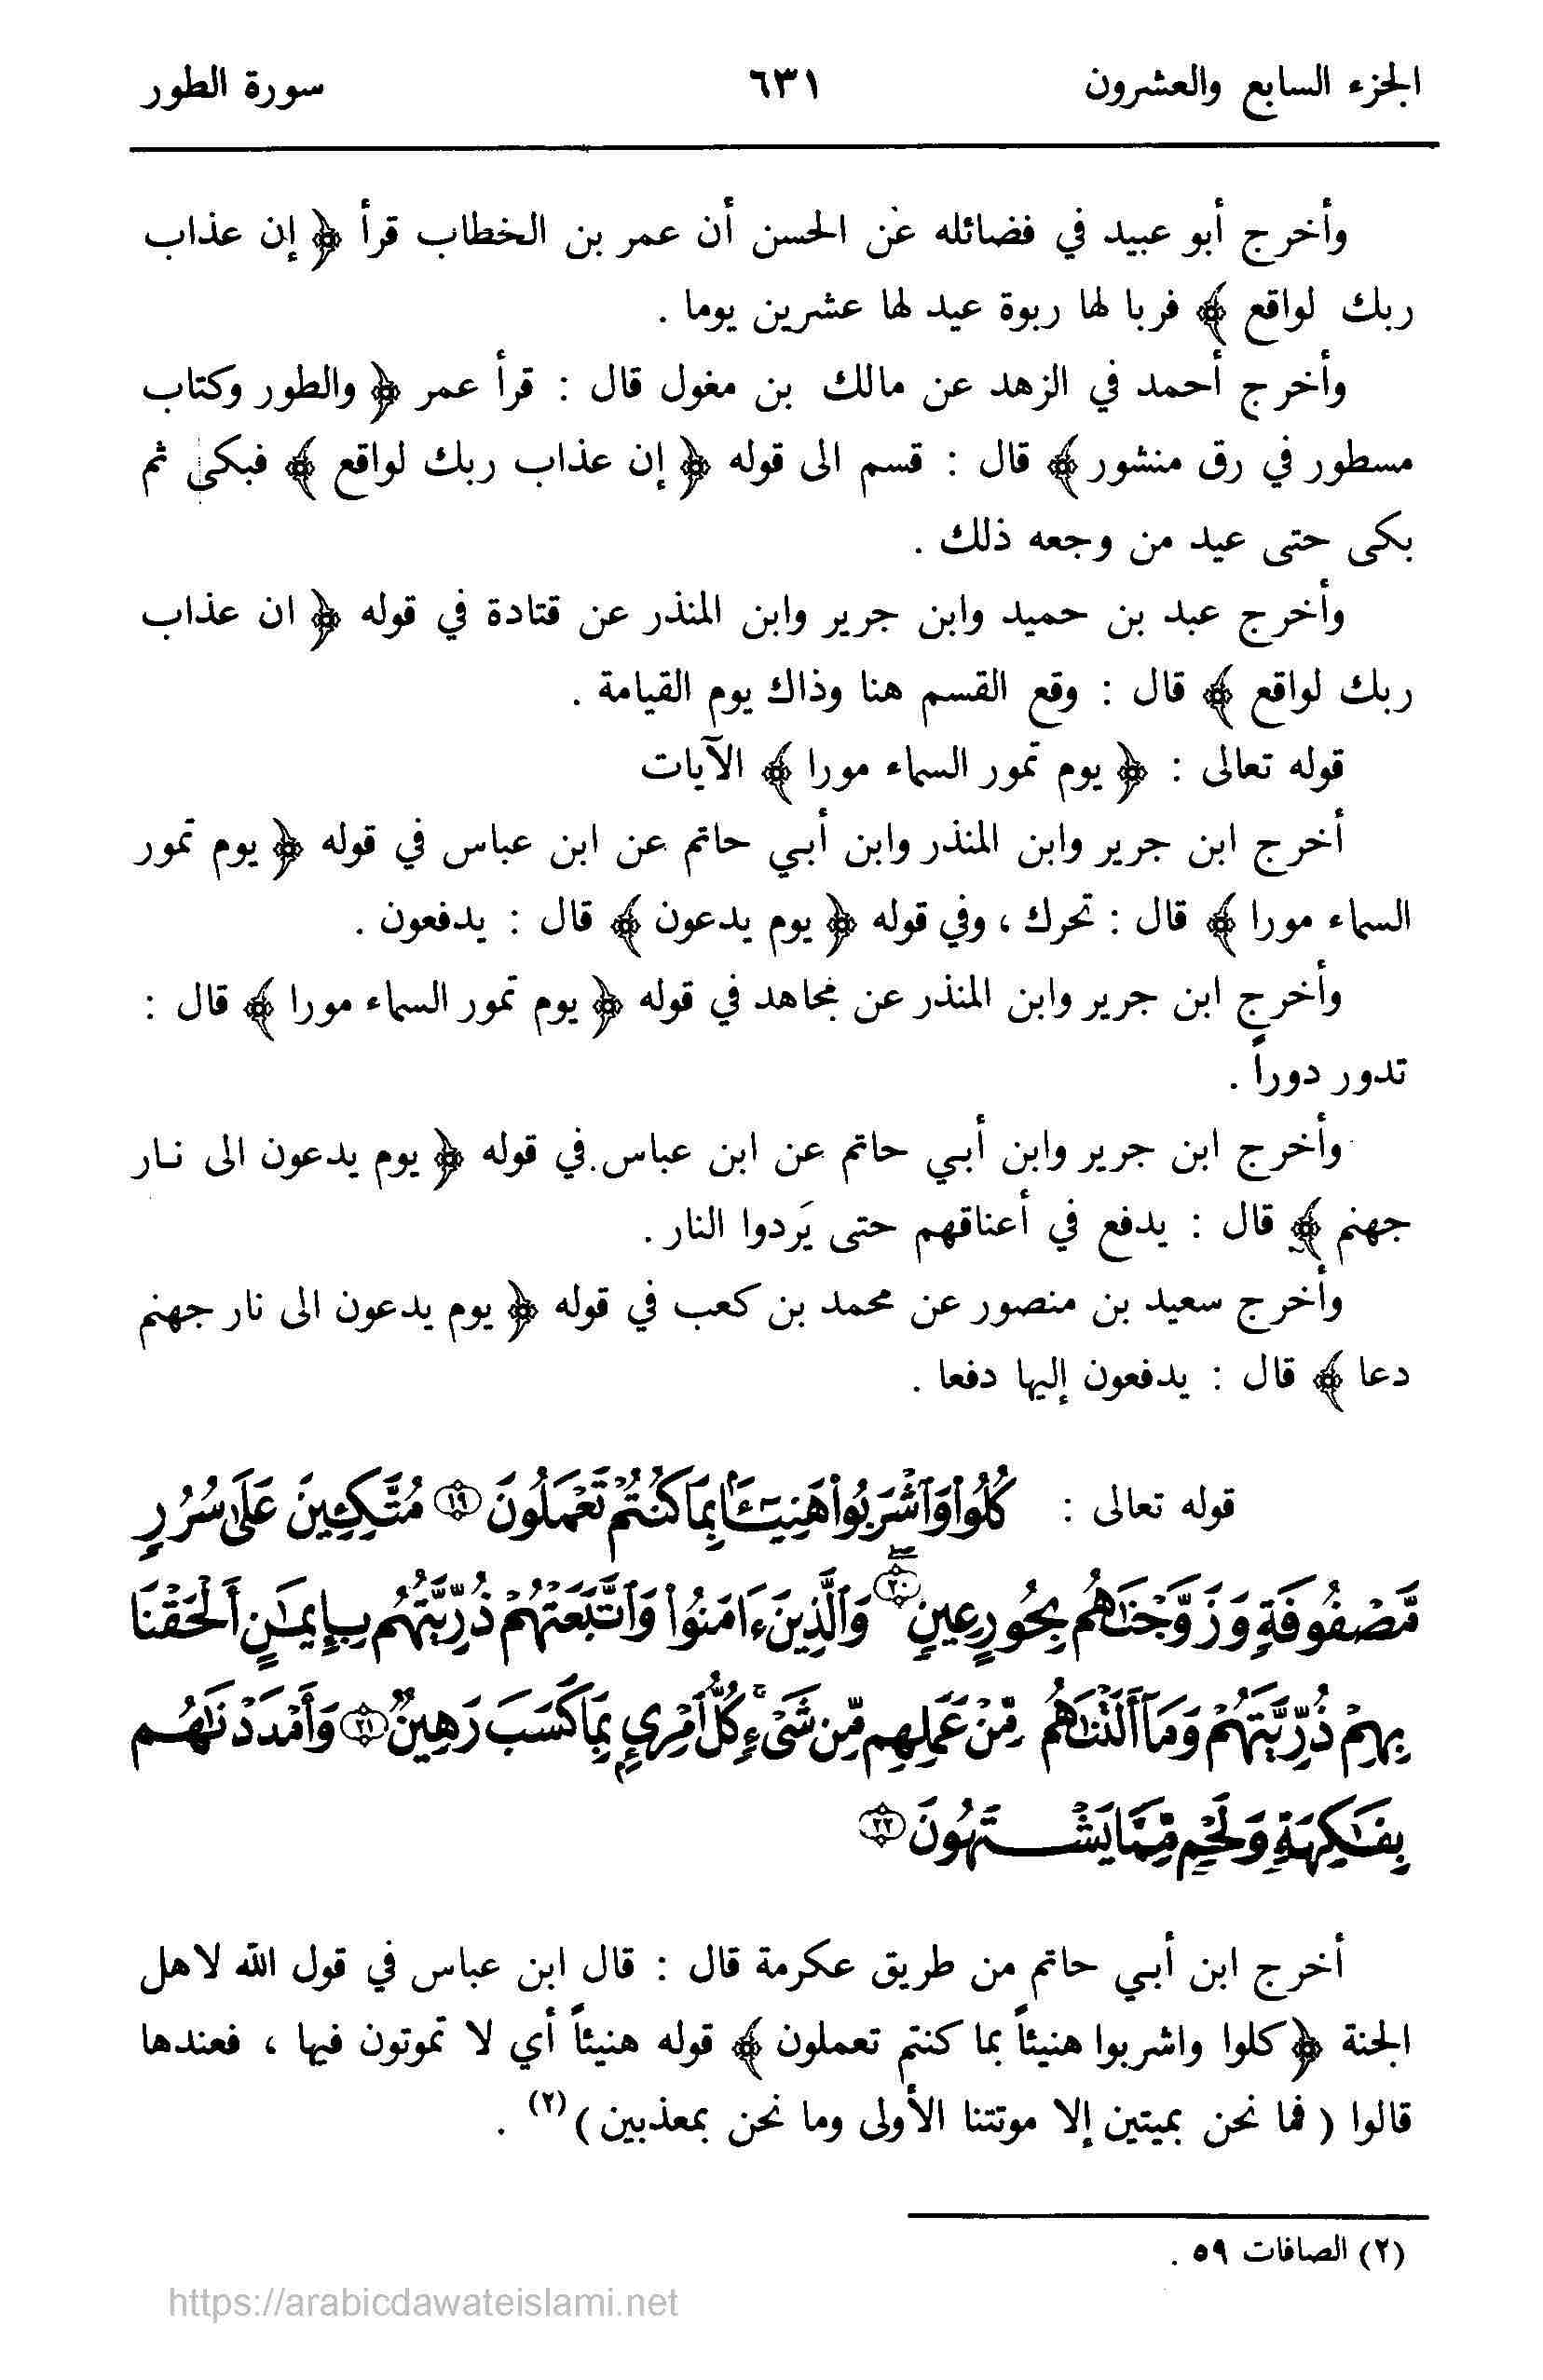 الجزء السابع والعشرون ٦٣١ سورة الطور
وأخرج أبو عبيد في فضائله عن الحسن أن عمر بن الخطاب قرأ ﴿ إن عذاب
ربك لواقع ﴾ فربا لها ربوة عيد لها عشرين يوما .
وأخرج أحمد في الزهد عن مالك بن مغول قال : قرأ عمر ﴿ والطور وكتاب
مسطور في رق منشور ﴾ قال : قسم الى قوله ﴿ إن عذاب ربك لواقع ﴾ فبكى ثم
بكى حتى عيد من وجعه ذلك .
وأخرج عبد بن حميد وابن جرير وابن المنذر عن قتادة في قوله ﴿ ان عذاب
ربك لواقع ﴾ قال : وقع القسم هنا وذاك يوم القيامة .
قوله تعالى : ﴿ يوم تمور السماء مورا ﴾ الآيات
أخرج ابن جرير وابن المنذر وابن أبي حاتم عن ابن عباس في قوله ﴿ يوم تمور
السماء مورا ﴾ قال : تحرك ، وفي قوله ﴿ يوم يدعون ﴾ قال : يدفعون .
وأخرج ابن جرير وابن المنذر عن مجاهد في قوله ﴿ يوم تمور السماء مورا ﴾ قال :
تدور دوراً .
وأخرج ابن جرير وابن أبي حاتم عن ابن عباس في قوله ﴿ يوم يدعون الى نـار
جهنم ﴾ قال : يدفع في أعناقهم حتى يَردوا النار .
وأخرج سعيد بن منصور عن محمد بن كعب في قوله ﴿ يوم يدعون الى نار جهنم
دعا ﴾ قال : يدفعون إليها دفعا .
قوله تعالى : كُلُوا۟ وَٱشْرَبُوا۟ هَنِيٓـَٔۢا بِمَا كُنتُمْ تَعْمَلُونَ ۝١٩ مُتَّكِـِٔينَ عَلَىٰ سُرُرٍ
مَّصْفُوفَةٍ وَزَوَّجْنَٰهُم بِحُورٍ عِينٍ ۝٢٠ وَٱلَّذِينَ ءَامَنُوا۟ وَٱتَّبَعَتْهُمْ ذُرِّيَّتُهُم بِإِيمَٰنٍ أَلْحَقْنَا
بِهِمْ ذُرِّيَّتَهُمْ وَمَآ أَلَتْنَٰهُم مِّنْ عَمَلِهِم مِّن شَىْءٍ ۚ كُلُّ ٱمْرِئٍۭ بِمَا كَسَبَ رَهِينٌ ۝٢١ وَأَمْدَدْنَٰهُم
بِفَٰكِهَةٍ وَلَحْمٍ مِّمَّا يَشْتَهُونَ ۝٢٢
أخرج ابن أبي حاتم من طريق عكرمة قال : قال ابن عباس في قول الله لاهل
الجنة ﴿ كلوا واشربوا هنيئاً بما كنتم تعملون ﴾ قوله هنيئاً أي لا تموتون فيها ، فعندها
قالوا ( فما نحن بميتين إلا موتتنا الأولى وما نحن بمعذبين )(٢) .
(٢) الصافات ٥٩ .
https://arabicdawateislami.net